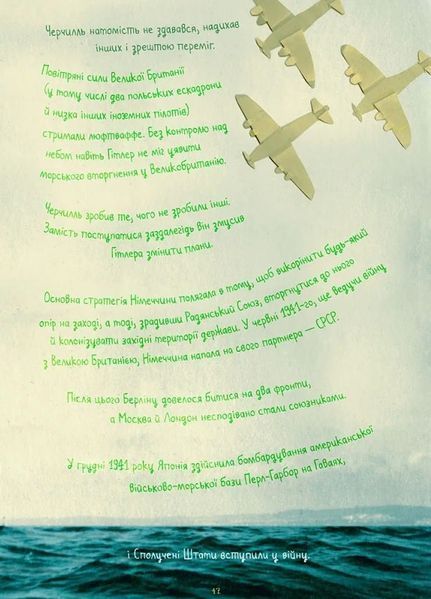 Черчилль натомість не здавався, надихав
інших і зрештою переміг.
Повітряні сили Великої Британії
(у тому числі два польських ескадрони
й низка інших іноземних пілотів)
стримали люфтваффе. Без контролю над
небом навіть Гітлер не міг уявити
морського вторгнення у Великобританію.
Черчилль зробив те, чого не зробили інші.
Замість поступатися заздалегідь він змусив
Гітлера змінити плани.
Основна стратегія Німеччини полягала в тому, щоб викорінити будь-який
опір на заході, а тоді, зрадивши Радянський Союз, вторгнутися до нього
й колонізувати західні території держави. У червні 1941-го, ще ведучи війну
з Великою Британією, Німеччина напала на свого партнера — СРСР.
Після цього Берліну довелося битися на два фронти,
а Москва й Лондон несподівано стали союзниками.
У грудні 1941 року Японія здійснила бомбардування американської
військово-морської бази Перл-Гарбор на Гаваях,
і Сполучені Штати вступили у війну.